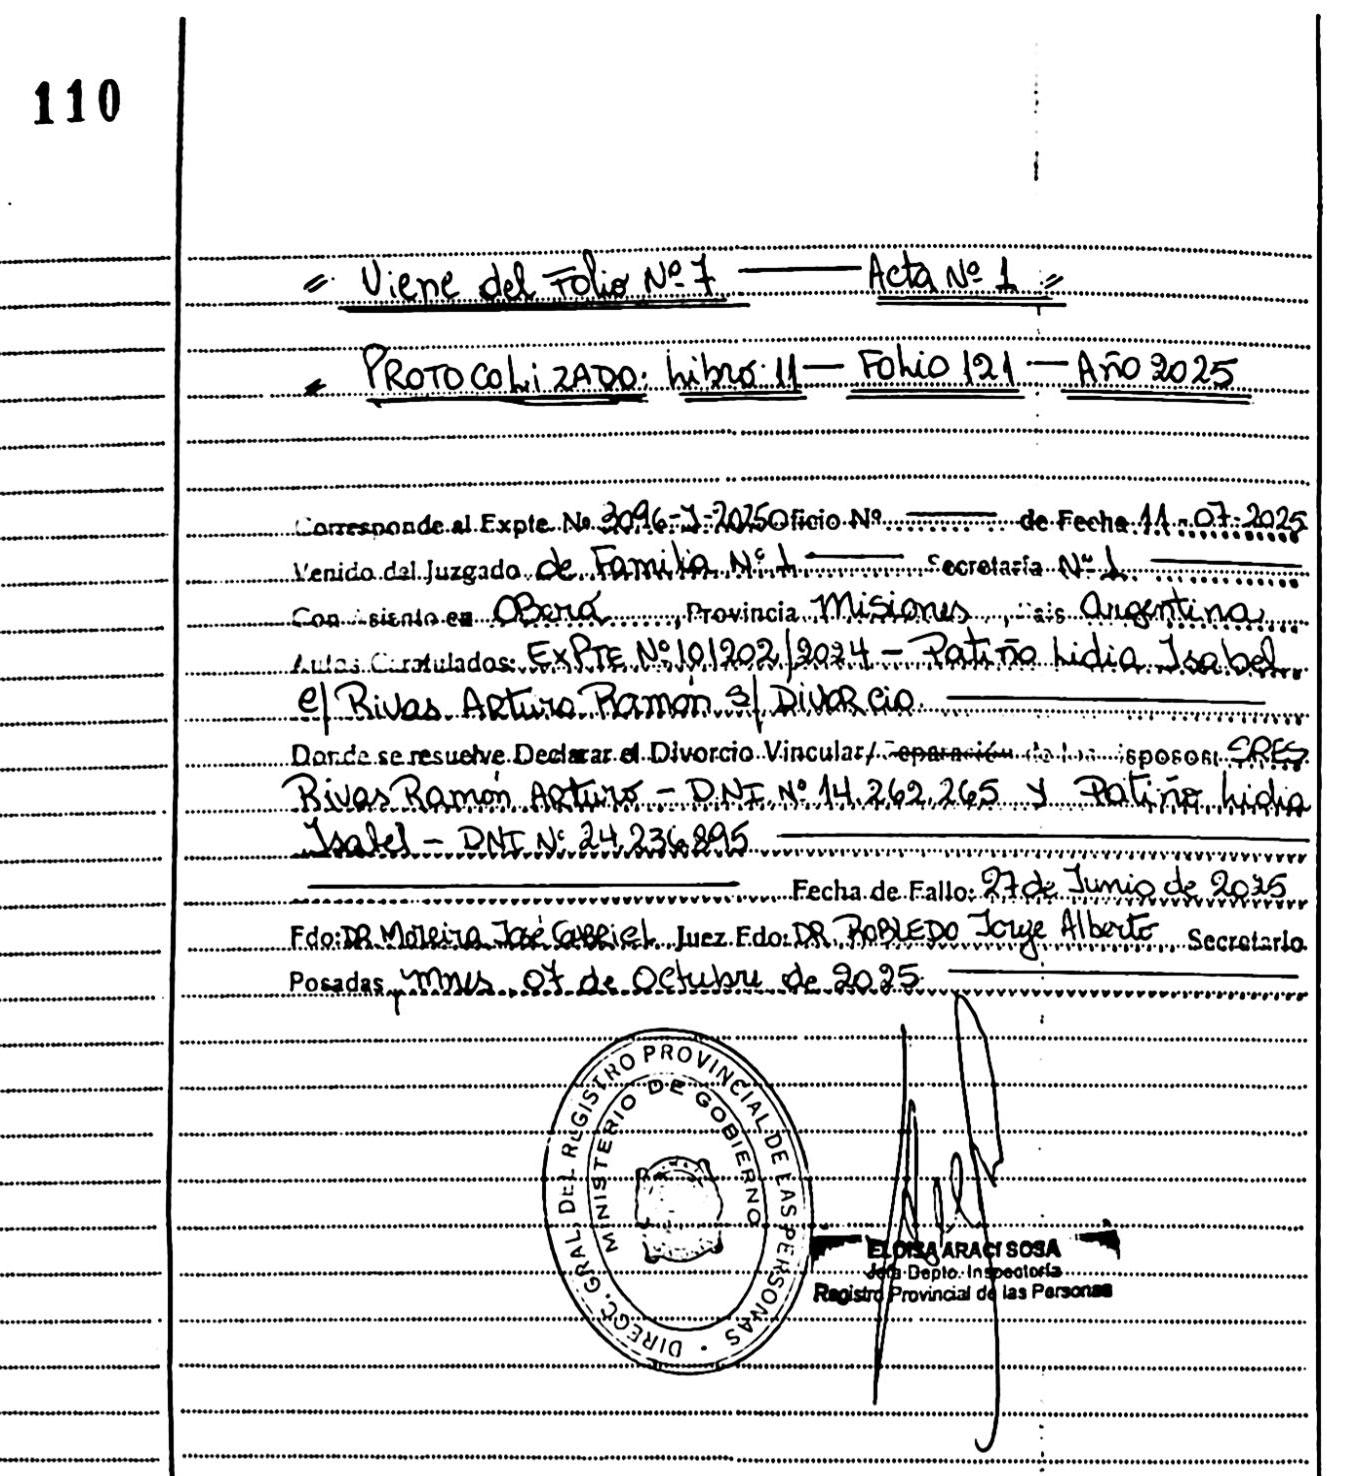 110
= Viene del Folio Nº 7 — Acta Nº 1 =
PROTOCOLIZADO: Libro 11 — Folio 121 — Año 2025
Corresponde al Expte. Nº 3096-J-2025 Oficio Nº — de Fecha 11-07-2025
Venido dal Juzgado de Familia Nº 1 — Secretaría Nº 1 —
Con asiento en Oberá, Provincia Misiones, País Argentina
Autos Caratulados: EXPTE Nº 101202/2024 - Patiño Lidia Isabel
c/ Rivas Arturo Ramón s/ Divorcio —
Donde se resuelve Declarar el Divorcio Vincular/ Separación de los esposos: SRES
Rivas Ramón Arturo - DNI Nº 14.262.265 y Patiño Lidia
Isabel - DNI Nº 24.236.895 —
— Fecha de Fallo: 27 de Junio de 2025
Fdo: DR Moreira José Gabriel Juez Fdo: DR ROBLEDO Jorge Alberto Secretario
Posadas, Mnes, 07 de Octubre de 2025 —
DIRECC. GRAL. DEL REGISTRO PROVINCIAL DE LAS PERSONAS
MINISTERIO DE GOBIERNO
ELOISA ARACI SOSA
Jefa Depto. Inspectoría
Registro Provincial de las Personas